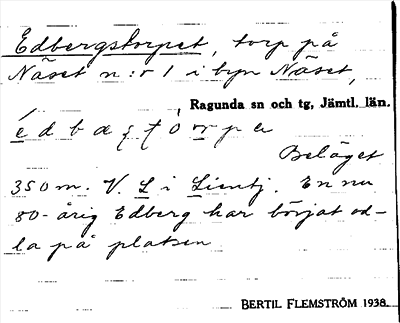 Edbergstorpet, torp på
Näset n:r 1 i byn Näset,
Ragunda sn och tg, Jämtl. län.
Beläget
350 m. V. L i Lientj. En nu
80-årig Edberg har börjat od-
la på platsen
BERTIL FLEMSTRÖM 1938.